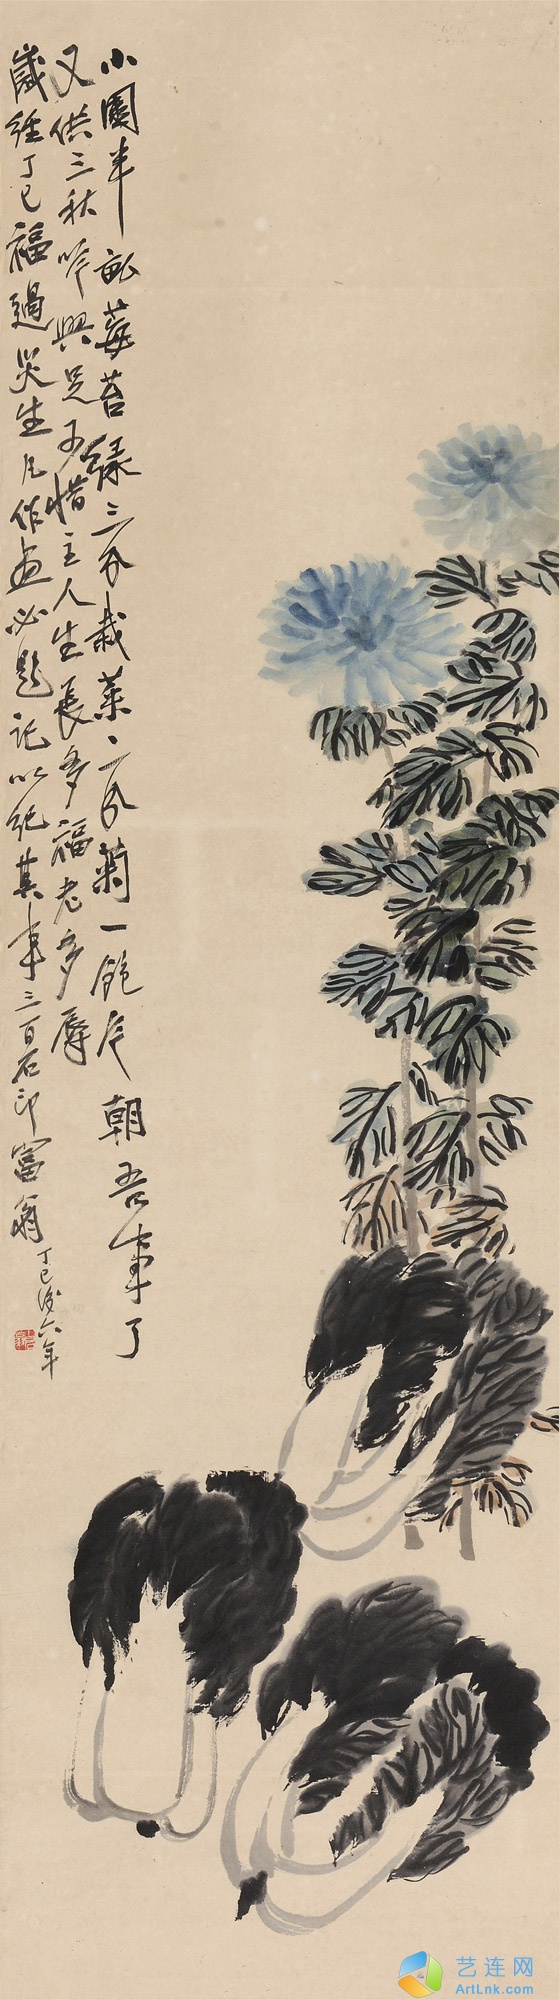 小園半畝莓苔綠二分栽菜一分菊一飽今朝吾事了
又供三秋吟興足可惜主人生長多福老多辱
歲經丁巳福過災生凡作画必題記以紀其事三百石印富翁
丁巳後六年
艺连网
ArtLnk.com